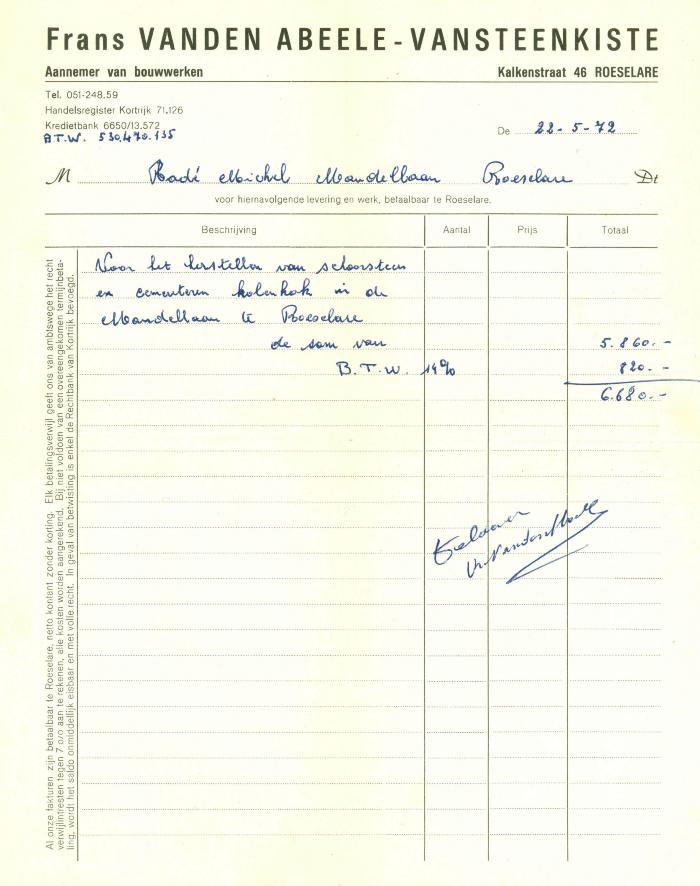 Frans VANDEN ABEELE-VANSTEENKISTE
Aannemer van bouwwerken Kalkenstraat 46 ROESELARE
Tel. 051-248.59
Handelsregister Kortrijk 71.126
Kredietbank 6650/13.572
B.T.W. 530.470.135
De 22-5-72
M Radé Michel Mandellaan Roeselare Dt
voor hiernavolgende levering en werk, betaalbaar te Roeselare.
Beschrijving Aantal Prijs Totaal
Voor het herstellen van schoorsteen
en cementeren kolenhok in de
Mandellaan te Roeselare
de som van 5.860.-
B.T.W. 14% 820.-
6.680.-
Voldaan
Al onze fakturen zijn betaalbaar te Roeselare, netto kontant zonder korting. Elk betalingsverwijl geeft ons van ambtswege het recht
verwijlintresten tegen 7 o/o aan te rekenen, alle kosten worden aangerekend. Bij niet voldoen van een overeengekomen termijnbeta-
ling, wordt het saldo onmiddellijk eisbaar en met volle recht. In geval van betwisting is enkel de Rechtbank van Kortrijk bevoegd.